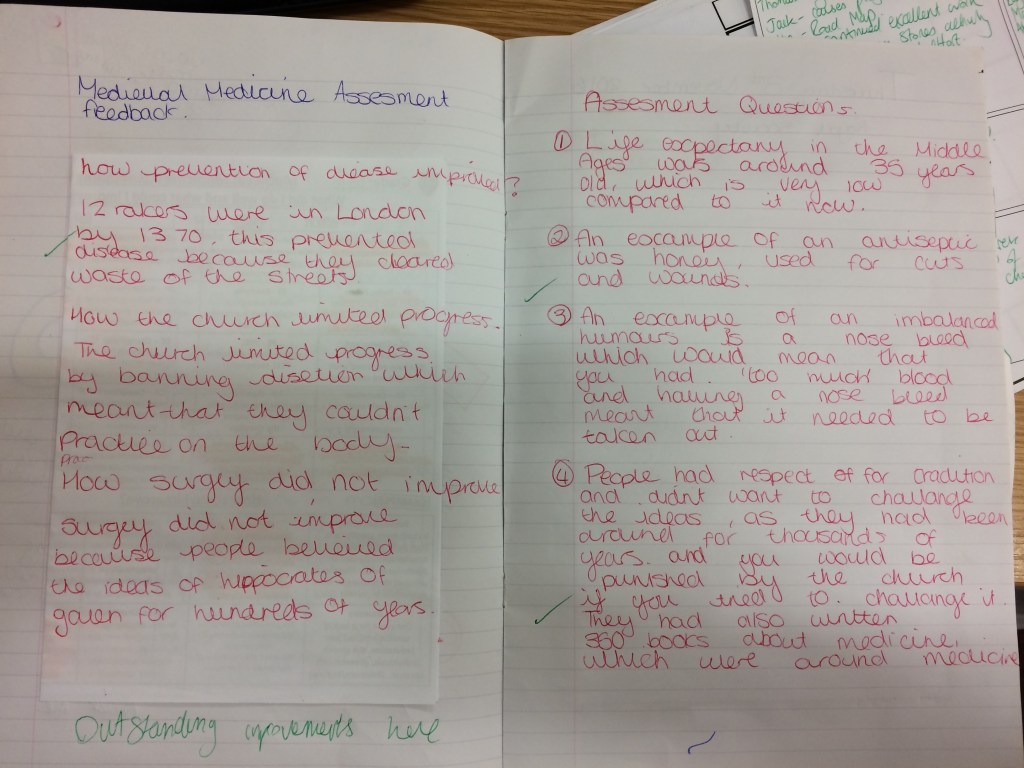 Medieval Medicine Assesment
feedback.
how prevention of diease improved?
12 rakers were in London
by 1370, this prevented
disease because they cleared
waste of the streets
How the church limited progress.
The church limited progress
by banning disetion which
meant that they couldn't
Practice on the body-
How surgey did not improve
surgey did not improve
because people believed
the ideas of hippocrates of
galen for hundreds of years.
Outstanding improvements here
Assesment Questions.
① Life expectany in the Middle
Ages was around 35 years
old, which is very low
compared to it now.
② An example of an antiseptic
was honey, used for cuts
and wounds.
③ An example of an imbalanced
humours is a nose bleed
which would mean that
you had 'too much' blood
and having a nose bleed
meant that it needed to be
taken out.
④ People had respect of for tradution
and didnt want to challange
the ideas, as they had been
around for thousands of
years. and you would be
punished by the church
if you tried to challange it.
They had also written
360 books about medicine,
which were around medicine
Jack-
Road Map excellent work
continued
Stones activity